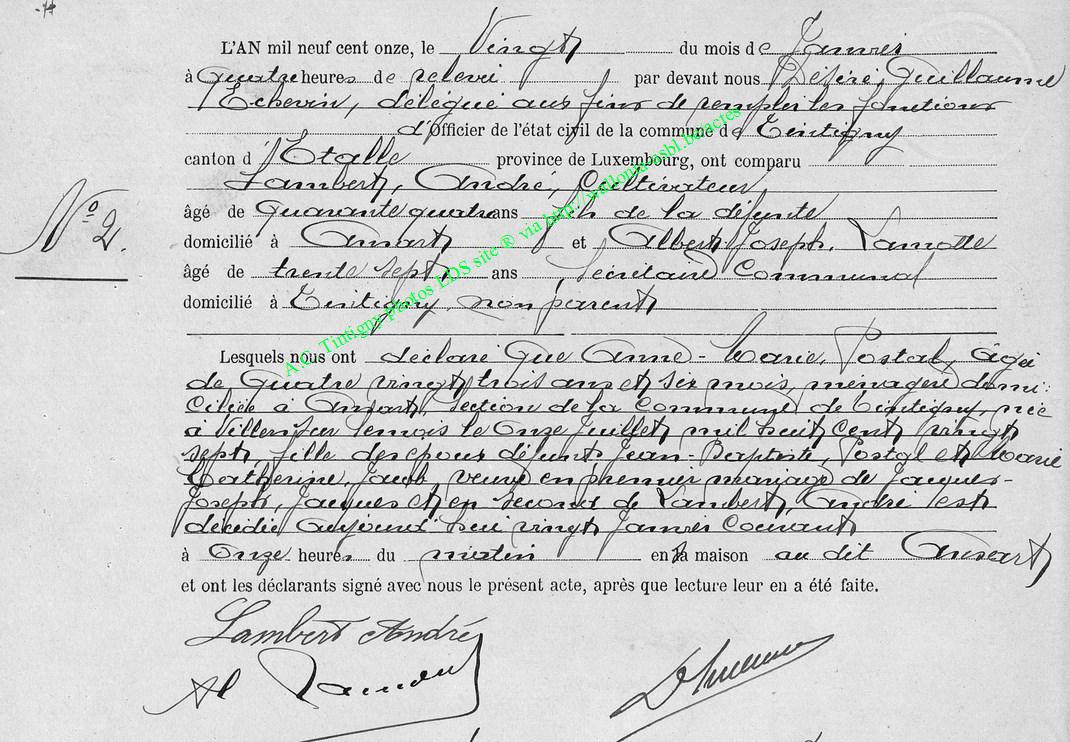 L'AN mil neuf cent onze, le Vingt du mois de Janvier
à Quatre heures de relevée par devant nous Désiré, Guillaume
Echevin, délégué aux fins de remplir les fonctions
d'Officier de l'état civil de la commune de Tintigny
canton d'Etalle province de Luxembourg, ont comparu
Lambert, André, Cultivateur,
âgé de Quarante quatre ans fils de la défunte
N° 2.
domicilié à Ansart et Albert Joseph, Lamotte
âgé de trente sept ans Secrétaire Communal
domicilié à Tintigny, non parent
Lesquels nous ont déclaré que Anne-Marie, Postal, âgée
de Quatre vingt trois ans et six mois, ménagère domi-
ciliée à Ansart, section de la Commune de Tintigny, née
à Villers sur Semois le Onze Juillet mil huit cent vingt
sept, fille des époux défunts Jean-Baptiste, Postal et Marie
Catherine, Jacob, veuve en premier mariage de Jacques-
Joseph, Jacques et en second de Lambert, André est
décédée aujourd'hui vingt Janvier Courant
à Onze heures du matin en la maison au dit Ansart
et ont les déclarants signé avec nous le présent acte, après que lecture leur en a été faite.
Lambert André
Al
A.C. Tintigny photos LDS site ® via http://walloniaasbl.be/actes